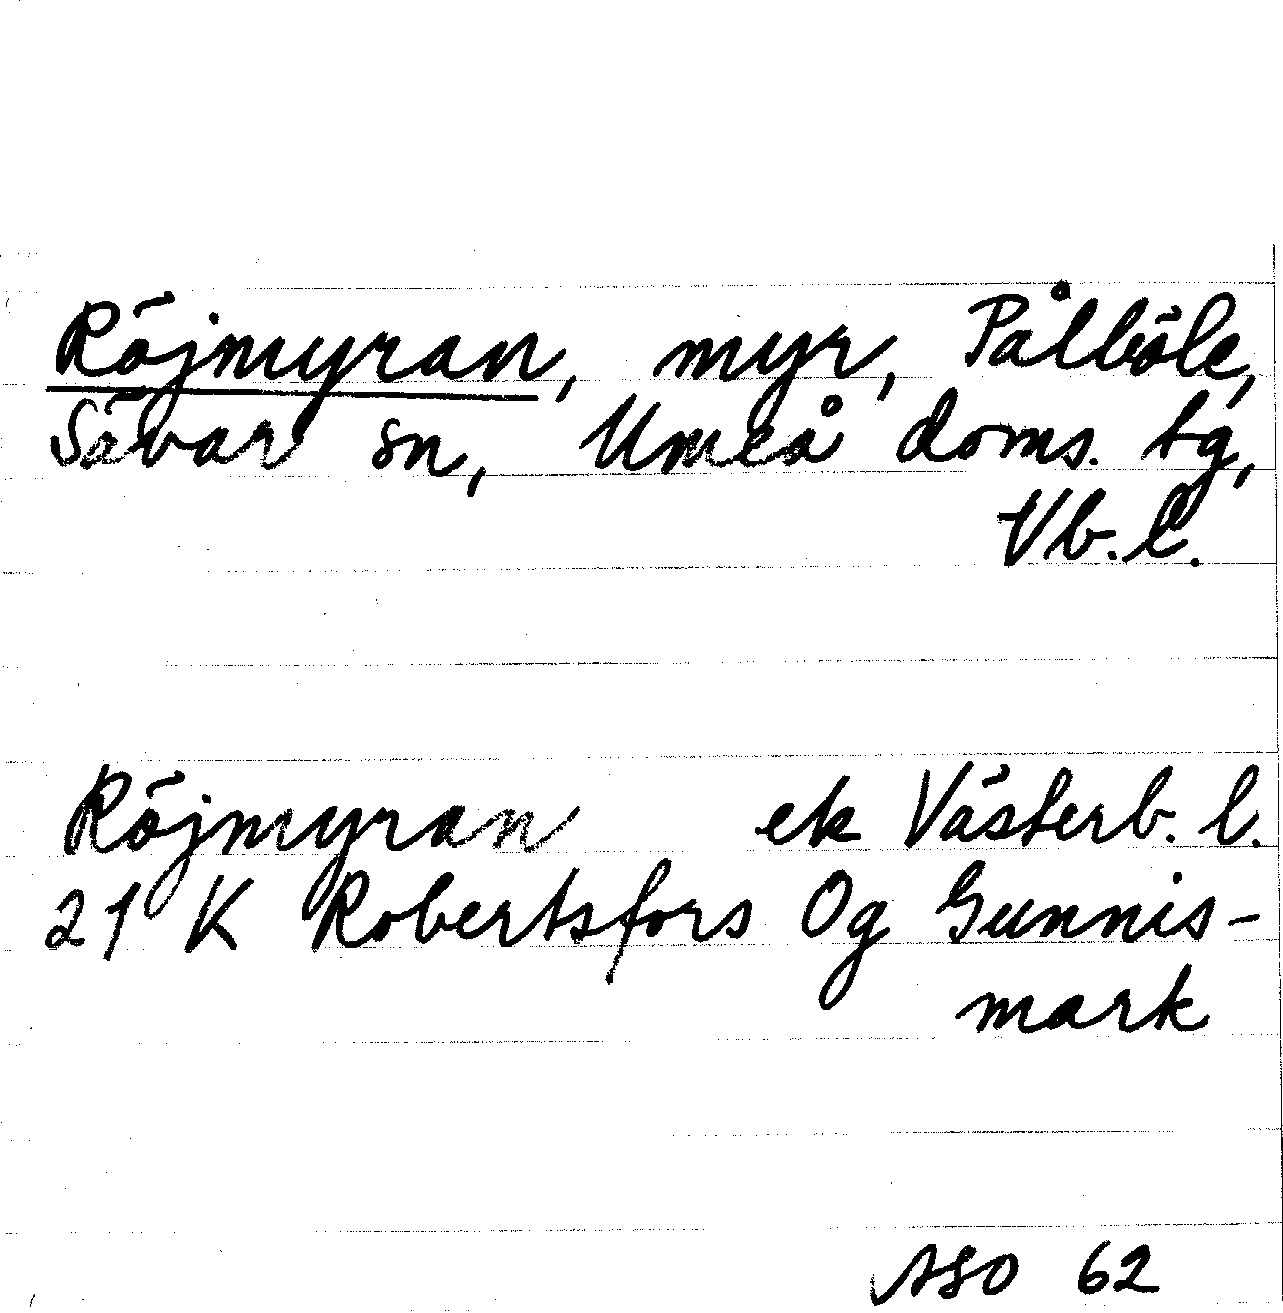 Röjmyran, myr, Pålböle,
Sävar sn, Umeå doms. tg,
Vb.l.
Röjmyran ek Västerb. l.
21 K Robertsfors Og Gunnis-
mark
ASO 62